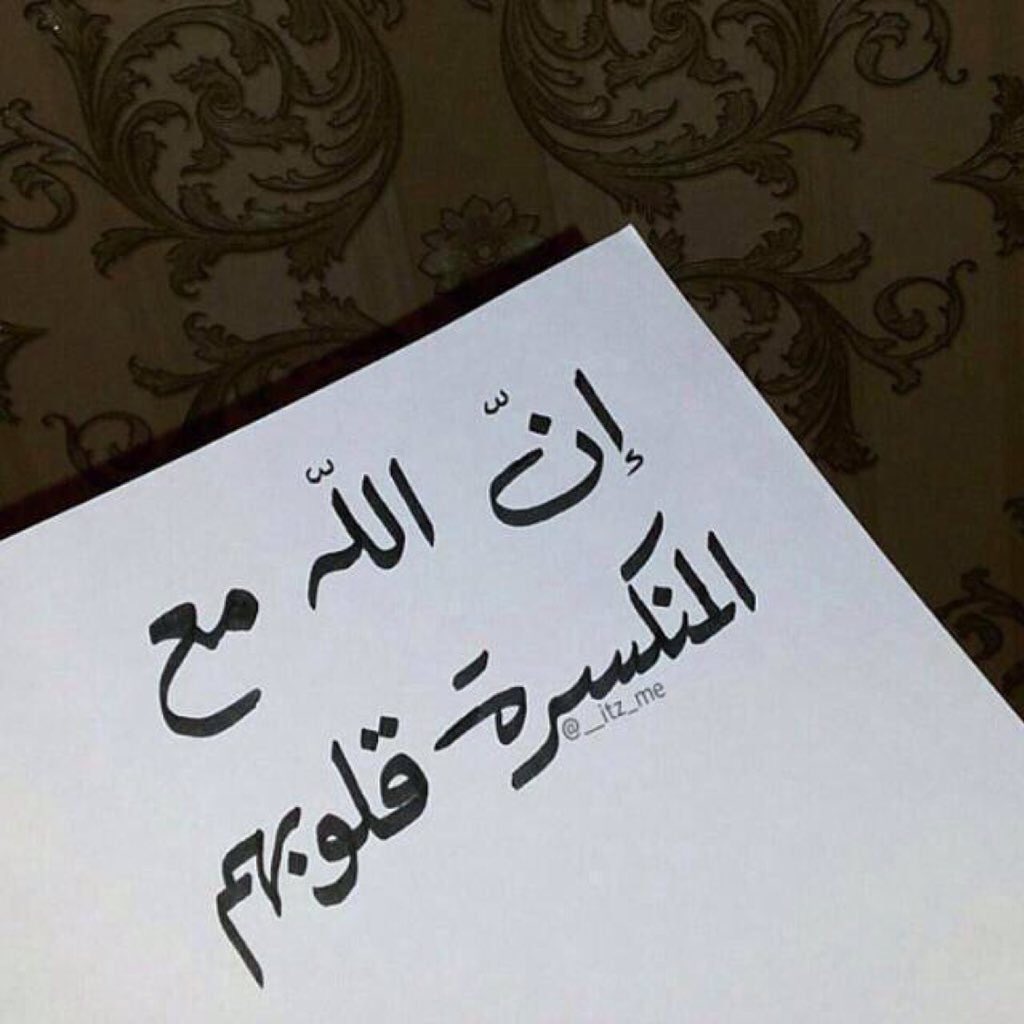 إنّ اللّه مع
المنكسرة قلوبهم
@__itz_me